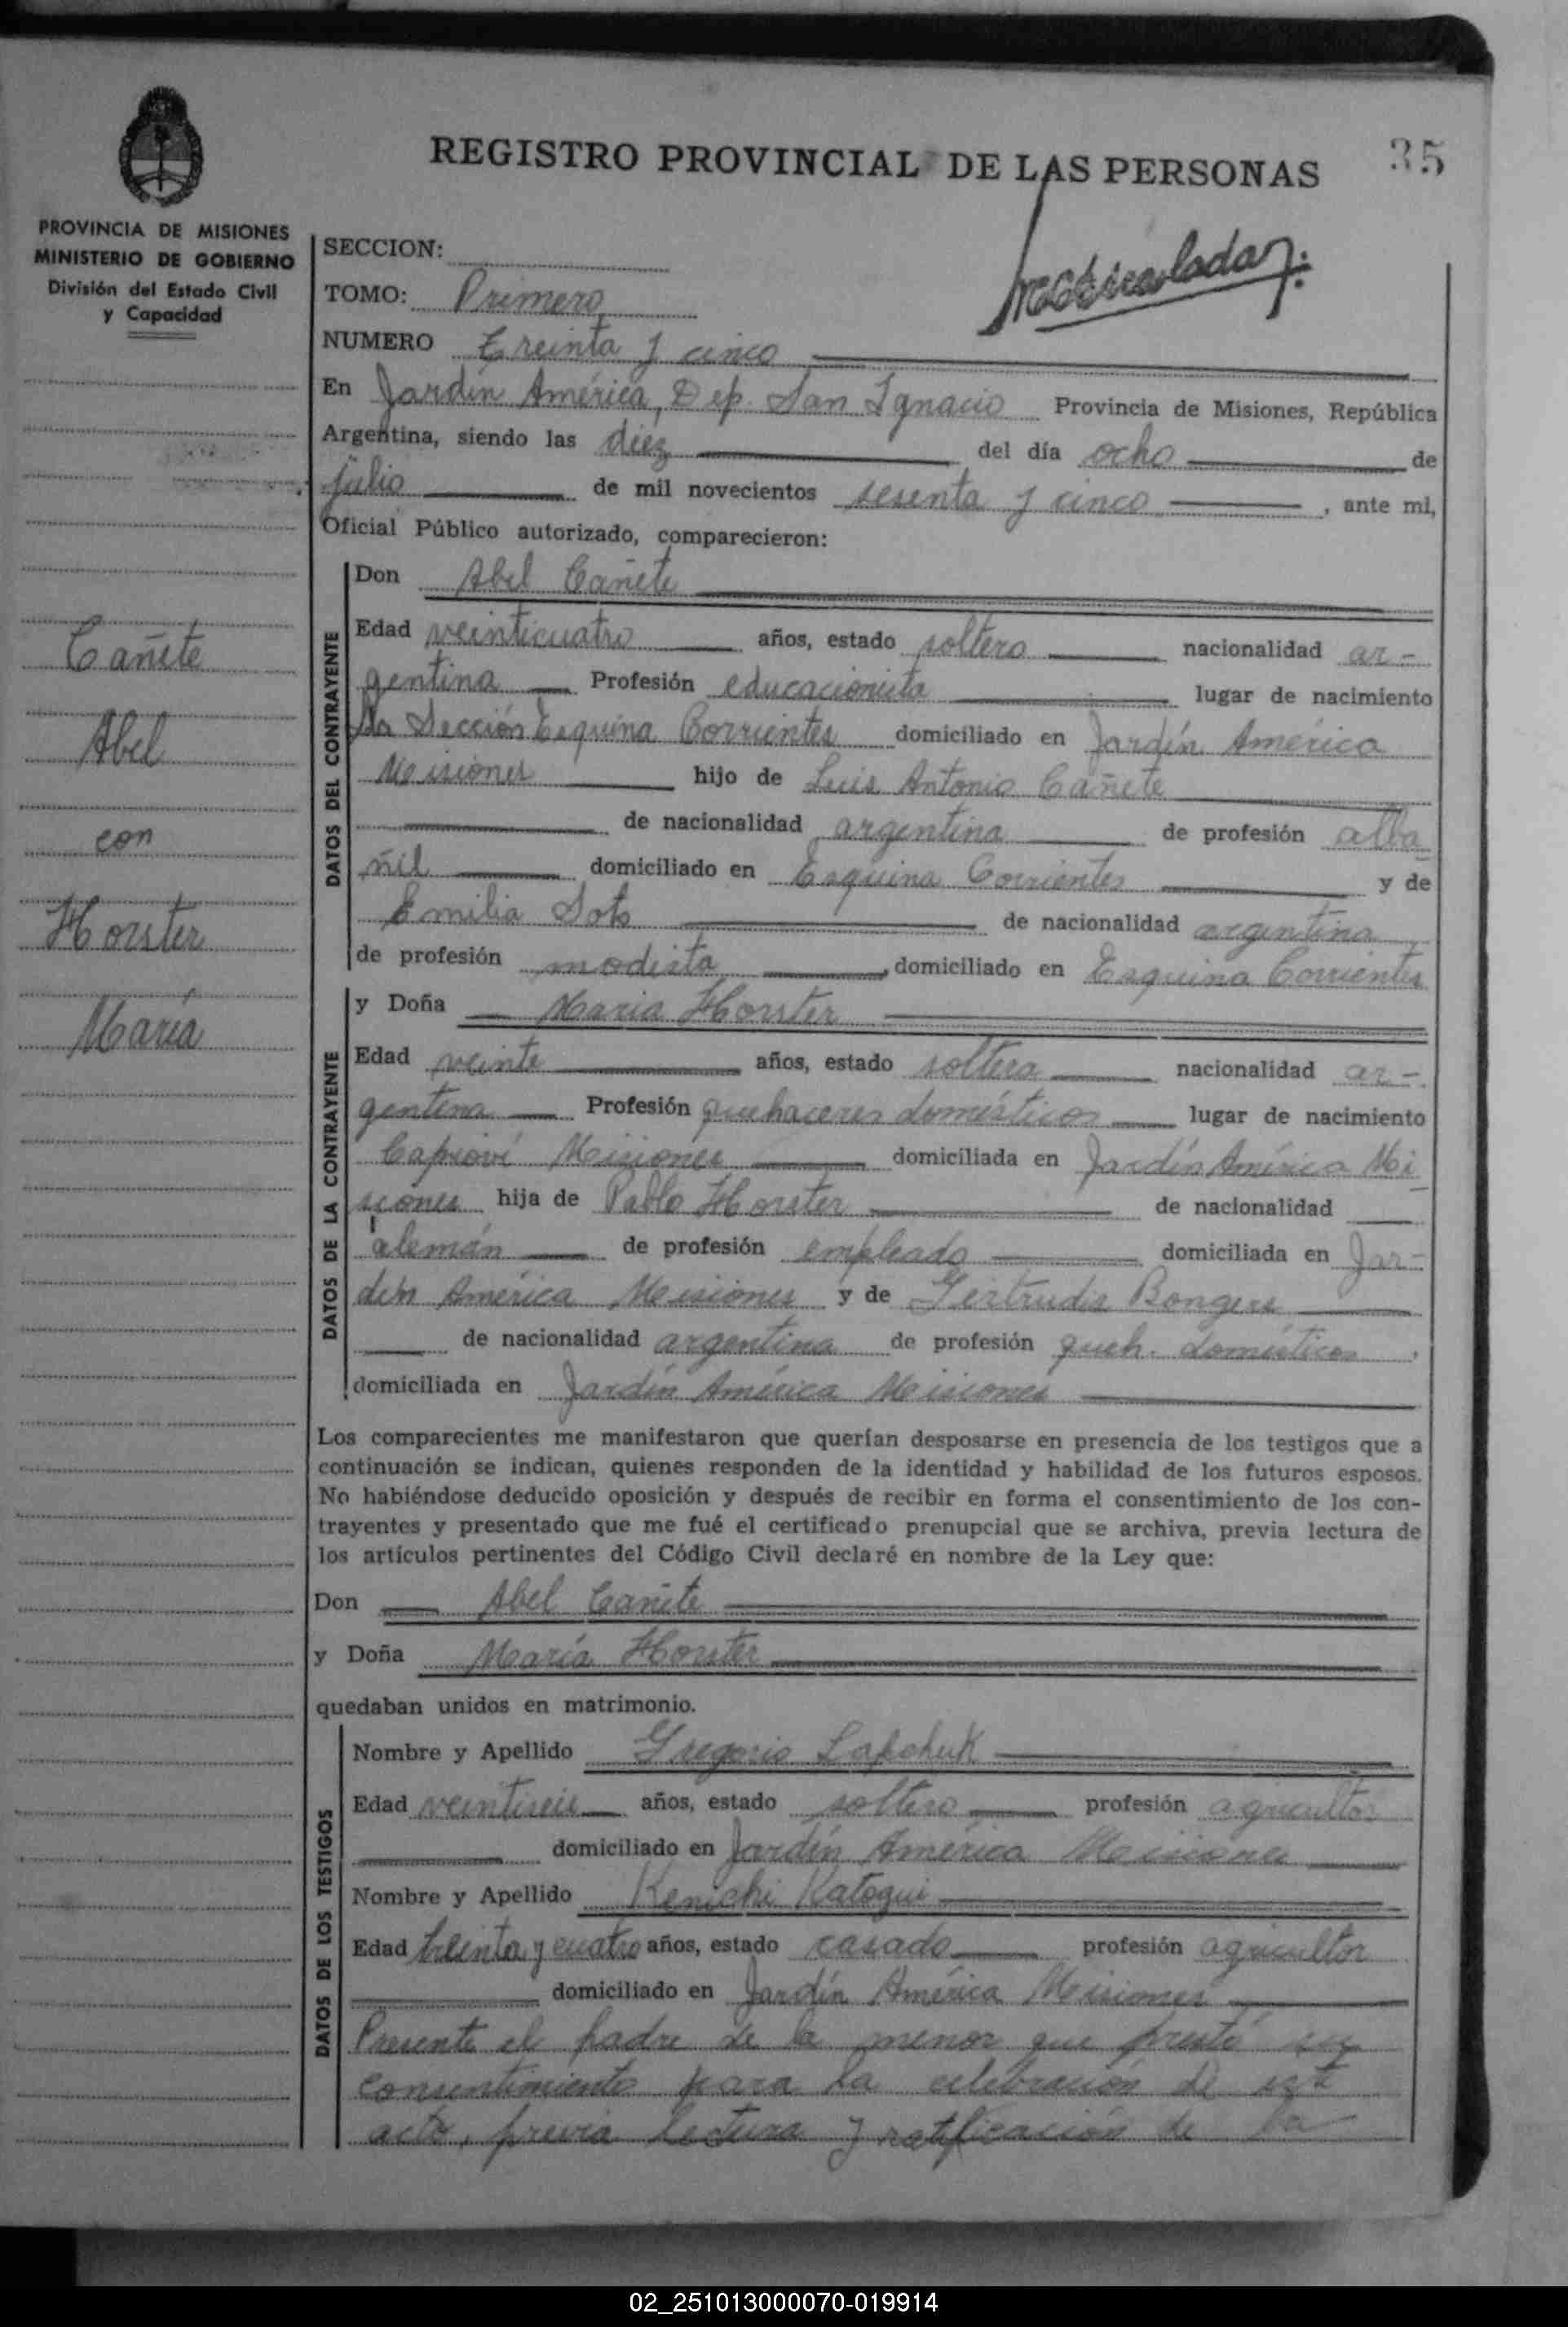 REGISTRO PROVINCIAL DE LAS PERSONAS
35
PROVINCIA DE MISIONES
MINISTERIO DE GOBIERNO
División del Estado Civil
y Capacidad
Cañete
Abel
con
Horster
María
SECCION:
TOMO: Primero
NUMERO Treinta y cinco
En Jardín América, Dep. San Ignacio Provincia de Misiones, República
Argentina, siendo las diez del día ocho de
julio de mil novecientos sesenta y cinco, ante mi,
Oficial Público autorizado, comparecieron:
DATOS DEL CONTRAYENTE
Don Abel Cañete
Edad veinticuatro años, estado soltero nacionalidad ar-
gentina Profesión educacionista lugar de nacimiento
Sección Esquina Corrientes domiciliado en Jardín América
Misiones hijo de Luis Antonio Cañete
de nacionalidad argentina de profesión alba
ñil domiciliado en Esquina Corrientes y de
Emilia Soto de nacionalidad argentina
de profesión modista, domiciliado en Esquina Corrientes
DATOS DE LA CONTRAYENTE
y Doña María Horster
Edad veinte años, estado soltera nacionalidad ar-
gentina Profesión quehaceres domésticos lugar de nacimiento
Capioví Misiones domiciliada en Jardín América Mi
siones hija de Pablo Horster de nacionalidad
alemán de profesión empleado domiciliada en Jar-
dín América Misiones y de Gertrudis Bongers
de nacionalidad argentina de profesión queh. domésticos,
domiciliada en Jardín América Misiones
Los comparecientes me manifestaron que querían desposarse en presencia de los testigos que a
continuación se indican, quienes responden de la identidad y habilidad de los futuros esposos.
No habiéndose deducido oposición y después de recibir en forma el consentimiento de los con-
trayentes y presentado que me fué el certificado prenupcial que se archiva, previa lectura de
los artículos pertinentes del Código Civil declaré en nombre de la Ley que:
Don Abel Cañete
y Doña María Horster
quedaban unidos en matrimonio.
DATOS DE LOS TESTIGOS
Nombre y Apellido Gregorio Lapchuk
Edad veintiseis años, estado soltero profesión agricultor
domiciliado en Jardín América Misiones
Nombre y Apellido Kenichi Katogui
Edad treinta y cuatro años, estado casado profesión agricultor
domiciliado en Jardín América Misiones
Presente el padre de la menor que prestó su
consentimiento para la celebración de este
acto, previa lectura y ratificación de la
02_251013000070-019914